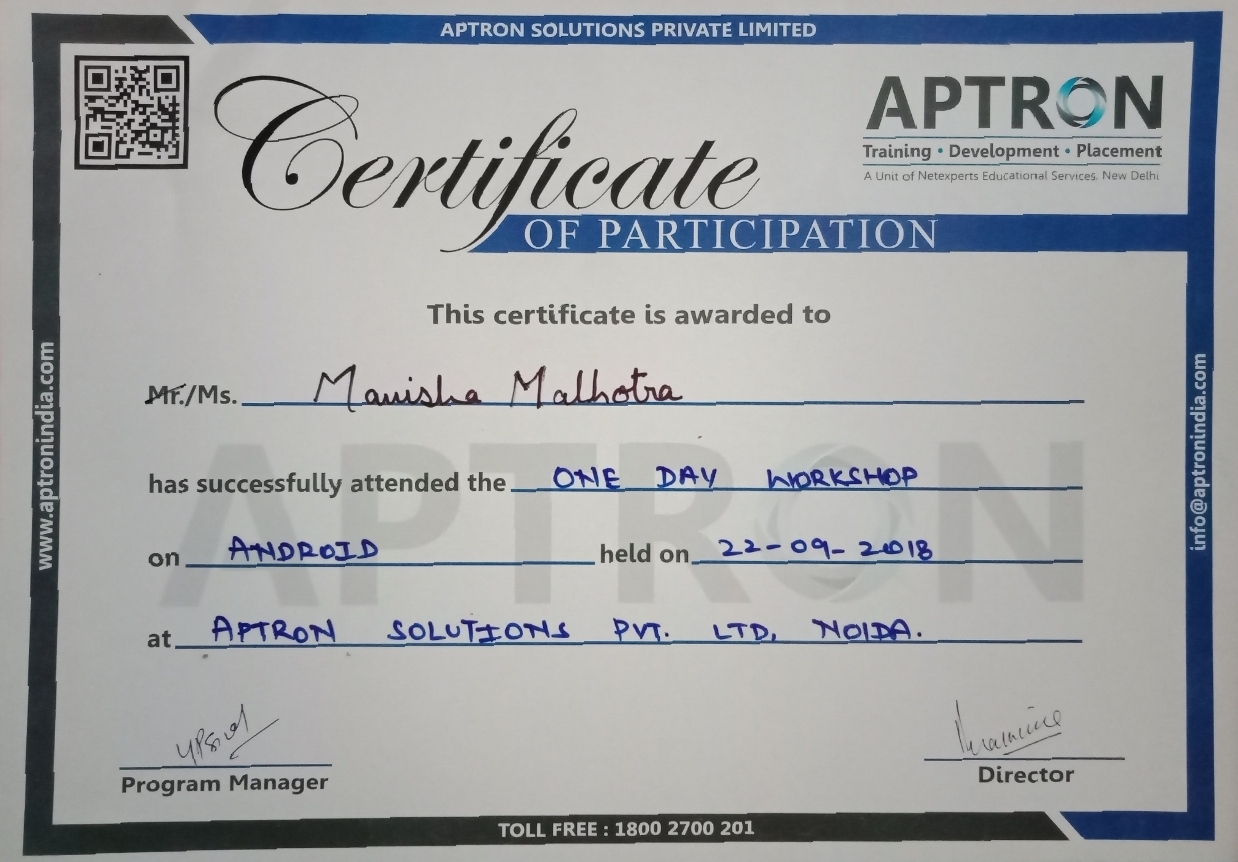 APTRON SOLUTIONS PRIVATE LIMITED
APTRON
Training • Development • Placement
A Unit of Netexperts Educational Services, New Delhi
Certificate
OF PARTICIPATION
This certificate is awarded to
Mr./Ms. Manisha Malhotra
has successfully attended the ONE DAY WORKSHOP
on ANDROID held on 22-09-2018
at APTRON SOLUTIONS PVT. LTD, NOIDA.
Program Manager
Director
www.aptronindia.com
info@aptronindia.com
TOLL FREE : 1800 2700 201
APTRON